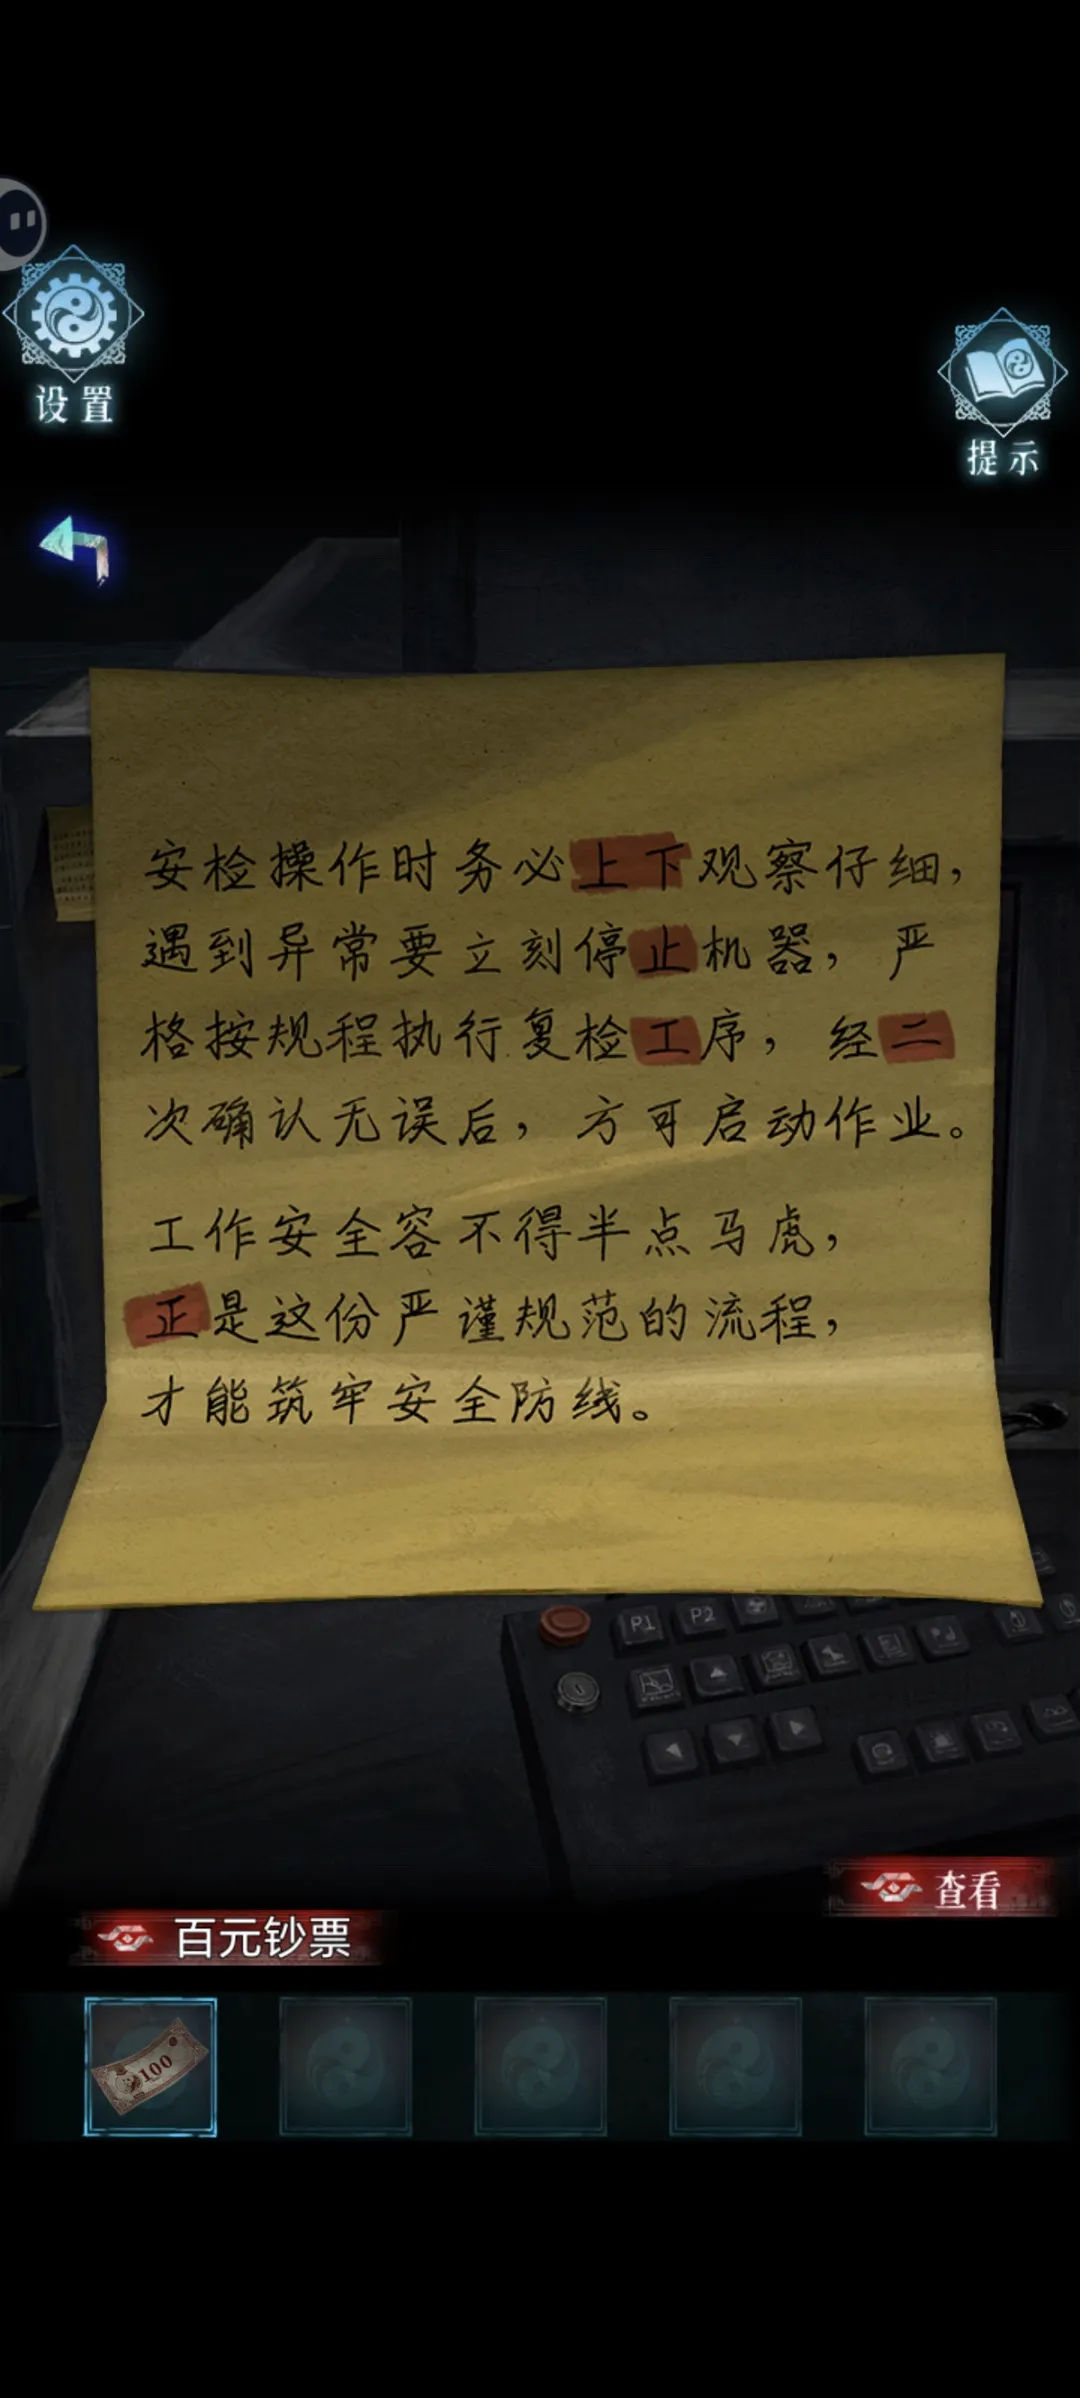 设置
提示
安检操作时务必上下观察仔细，
遇到异常要立刻停止机器，严
格按规程执行复检工序，经二
次确认无误后，方可启动作业。
工作安全容不得半点马虎，
正是这份严谨规范的流程，
才能筑牢安全防线。
P1 P2
查看
百元钞票
100